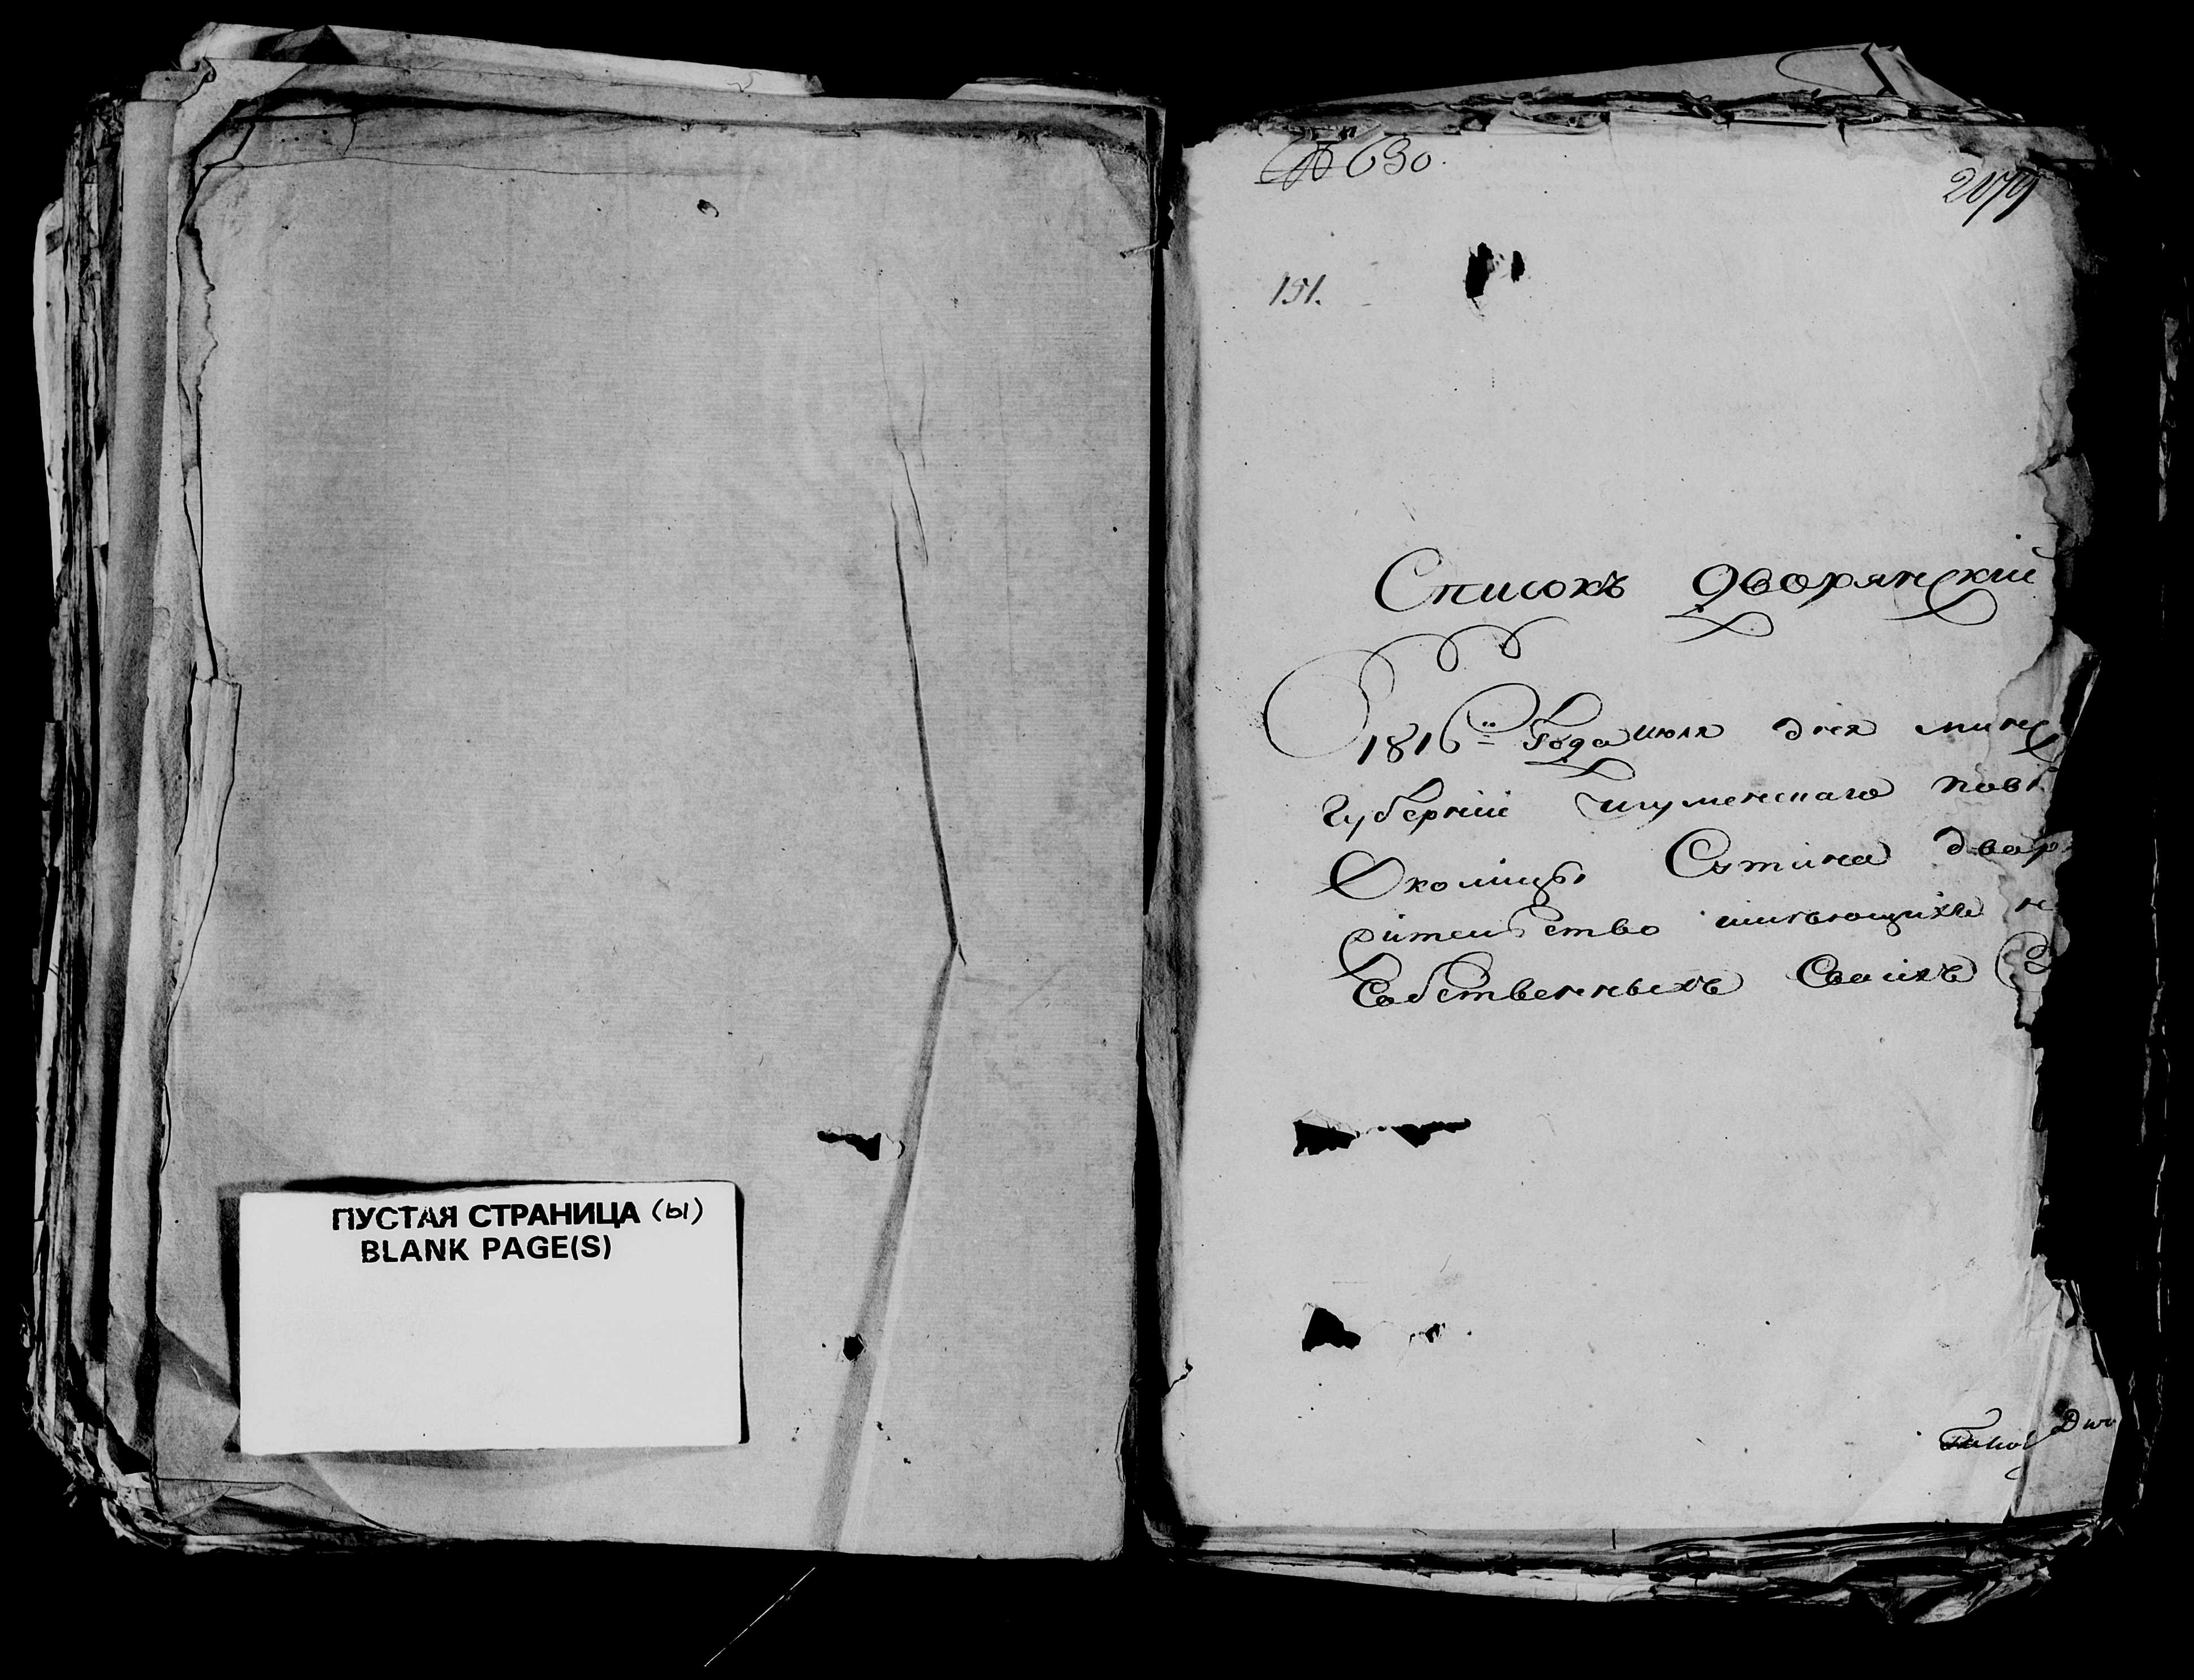 ПУСТАЯ СТРАНИЦА (Ы)
BLANK PAGE(S)
№ 630.
2079
151.
Списокъ Дворянскій
1816 Года июля дня минс
губерніи Игуменскаго повѣ
Околицы Сутина двор
жительство имѣющихъ н
Собственныхъ Своихъ